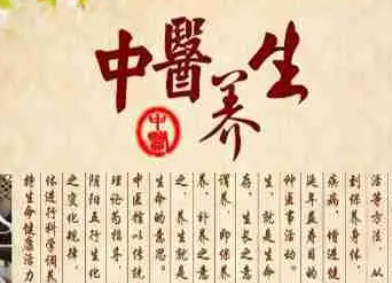 中醫养生
中醫
活等方法，从
到保养身体，
疾病、增进健
延年益寿目的
种医事活动。
生，就是生命
存、生长之意
谓养，即保养
养、补养之意
之，养生就是
生命的意思。
中医馆以传统
理论为指导，
阴阳五行生化
之变化规律，
体进行科学调养
持生命健康活力